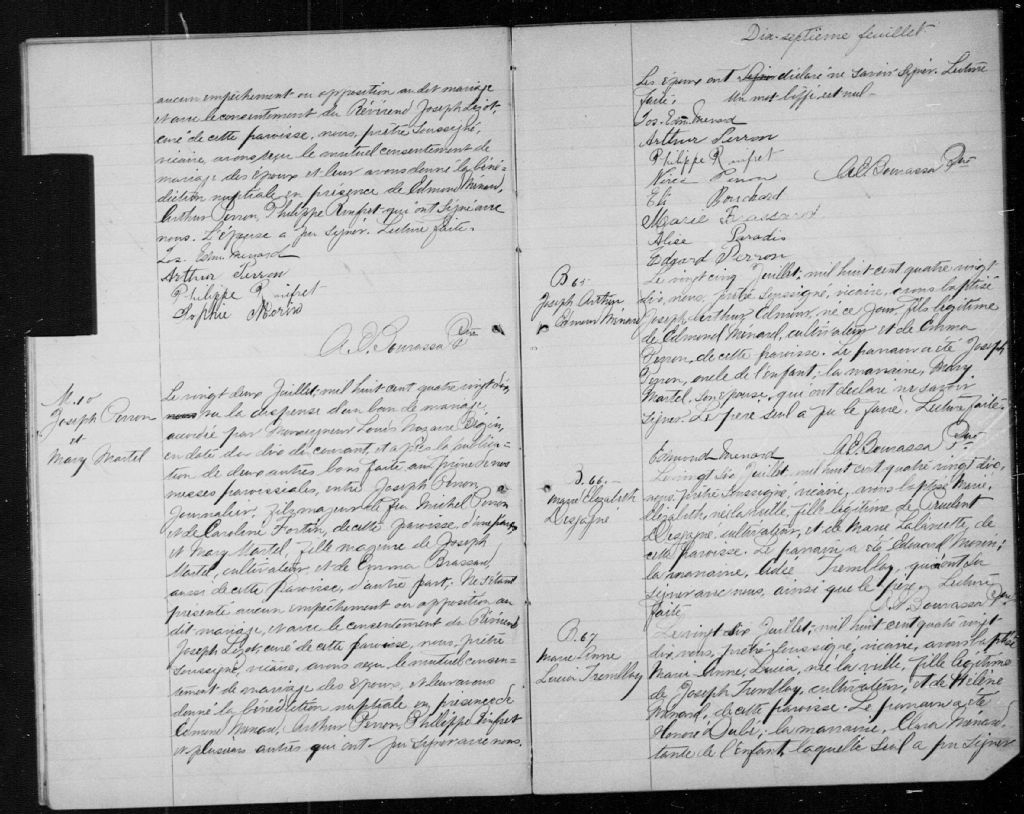 aucun empêchement ou opposition au dit mariage
et avec le consentement du Révérend Joseph Lizot,
curé de cette paroisse, nous, prêtre soussigné,
vicaire, avons reçu le mutuel consentement de
mariage des époux et leur avons donné la béné-
diction nuptiale en présence de Edmond Ménard,
Arthur Perron, Philippe Rinfret qui ont signé avec
nous. L'épouse a pu signer. Lecture faite.
Jos. Edm. Menard
Arthur Perron
Philippe Rinfret
Sophie Morin
A. E. Bourassa Ptre
M. 10
Joseph Perron
et
Mary Martel
Le vingt deux Juillet, mil huit cent quatre vingt dix,
vu la dispense d'un ban de mariage
accordée par Monseigneur Louis Nazaire Bégin,
en date du dix du courant, et après la publica-
tion de deux autres bans faite au prône de nos
messes paroissiales, entre Joseph Perron
Journalier, fils majeur de feu Michel Perron
et de Caroline Fortin, de cette paroisse, d'une part,
et Mary Martel, fille mineure de Joseph
Martel, cultivateur et de Emma Brassard,
aussi de cette paroisse, d'autre part. Ne s'étant
présenté aucun empêchement ou opposition au
dit mariage, et avec le consentement du Révérend
Joseph Lizot, curé de cette paroisse, nous, prêtre
soussigné, vicaire, avons reçu le mutuel consen-
tement de mariage des époux, et leur avons
donné la bénédiction nuptiale en présence de
Edmond Menard, Arthur Perron, Philippe Rinfret
et plusieurs autres qui ont pu signer avec nous.
Dix-septième feuillet
Les époux ont déclaré ne savoir signer. Lecture
faite. Un mot biffé est nul
Jos. Edm. Menard
Arthur Perron
Philippe Rinfret
Perron A E Bourassa Ptre
Bouchard
Marie Brassard
Alise Paradis
Edgard Perron
B 65
Joseph Arthur
Edmond Ménard
Le vingt cinq Juillet, mil huit cent quatre vingt
dix, nous, prêtre soussigné, vicaire, avons baptisé
Joseph Arthur Edmond, né ce jour, fils légitime
de Edmond Ménard, cultivateur et de Emma
Perron, de cette paroisse. Le parrain a été Joseph
Perron, oncle de l'enfant, la marraine, Mary
Martel, son épouse, qui ont déclaré ne savoir
signer. Le père seul a pu le faire. Lecture faite.
Edmond Menard A E Bourassa Ptre
B. 66.
Marie Elizabeth
Desgagné
Le vingt six Juillet, mil huit cent quatre vingt dix,
nous, prêtre soussigné, vicaire, avons baptisé Marie,
Elizabeth, née la veille, fille légitime de Prudent
Desgagné, cultivateur, et de Marie Lalancette, de
cette paroisse. Le parrain a été Edouard Morin;
la marraine, Tremblay, qui ont su
signer avec nous, ainsi que le père. Lecture
faite A. E. Bourassa Ptre
B. 67
Marie Anne
Lucia Tremblay
Le vingt six Juillet, mil huit cent quatre vingt
dix, nous, prêtre soussigné, vicaire, avons baptisé
Marie Anne, Lucia, née la veille, fille légitime
de Joseph Tremblay, cultivateur, et de Hélène
Ménard, de cette paroisse. Le parrain a été
Honoré Dubé; la marraine, Clara Ménard
tante de l'enfant, laquelle seul a pu signer